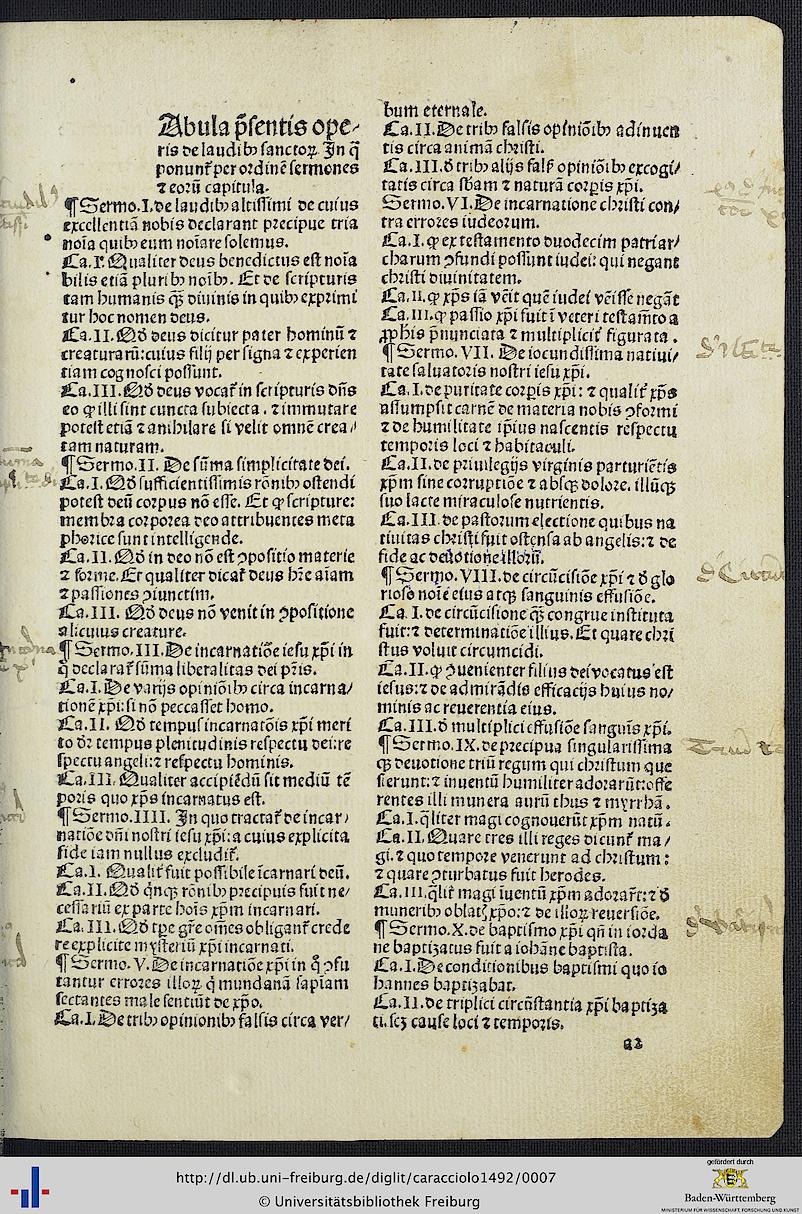 Abula p̄sentis ope-
ris de laudibꝰ sanctoꝝ. In q̄
ponunt᷑ per ordinē sermones
⁊ eorū capitula.
¶ Sermo.I. de laudibꝰ altissimi de cuius
excellentiā nobis declarant precipue tria
noīa quibꝰ eum noīare solemus.
Ca.I. Qualiter deus benedictus est noīa
bilis etiā pluribꝰ noībꝰ. Et de scripturis
tam humanis qꝫ diuinis in quibꝰ exprimi
tur hoc nomen deus.
Ca.II. Qḋ deus dicitur pater hominū ⁊
creaturarū: cuius filij per signa ⁊ experien
tiam cognosci possunt.
Ca.III. Qḋ deus vocat᷑ in scripturis dn̄s
eo ꝙ illi sint cuncta subiecta. ⁊ immutare
potest etiā ⁊ anihilare si velit omnē crea/
tam naturam.
¶ Sermo.II. De sūma simplicitate dei.
Ca.I. Qḋ sufficientissimis rōnibꝰ ostendi
potest deū corpus nō esse. Et ꝙ scripture:
membra corporea deo attribuentes meta
phorice sunt intelligende.
Ca.II. Qḋ in deo nō est ꝯpositio materie
⁊ forme. Et qualiter dicat᷑ deus hr̄e aīam
⁊ passiones ꝯiunctim.
Ca.III. Qḋ deus nō venit in ꝯpositione
alicuius creature.
¶ Sermo.III. De incarnatiōe iesu xp̄i in
q̄ declarat᷑ sūma liberalitas dei pr̄is.
Ca.I. De varijs opiniōibꝰ circa incarna/
tionē xp̄i: si nō peccasset homo.
Ca.II. Qḋ tempus incarnatōis xp̄i meri
to dr̄ tempus plenitudinis respectu dei: re
spectu angeli: ⁊ respectu hominis.
Ca.III. Qualiter accipiēdū sit mediū tē
poris quo xp̄s incarnatus est.
¶ Sermo.IIII. In quo tractat᷑ de incar/
natiōe dn̄i nostri iesu xp̄i: a cuius explicita
fide iam nullus excludit᷑.
Ca.I. Qualit᷑ fuit possibile īcarnari deū.
Ca.II. Qḋ qn̄qꝫ rōnibꝰ precipuis fuit ne/
cessariū ex parte hoīs xp̄m incarnari.
Ca.III. Qḋ tꝑe gr̄e om̄es obligant᷑ crede
re explicite mysteriū xp̄i incarnati.
¶ Sermo.V. De incarnatiōe xp̄i in q̊ ꝯfu
tantur errores illoꝝ q̊ mundanā sapiam
sectantes male sentiūt de xp̄o.
Ca.I. De tribꝰ opinionibꝰ falsis circa ver/
bum eternale.
Ca.II. De tribꝰ falsis opiniōibꝰ adinuen
tis circa animā christi.
Ca.III. ḋ tribꝰ alijs fals̄ opiniōibꝰ excogi/
tatis circa sb̄am ⁊ naturā corꝑis xp̄i.
Sermo.VI. De incarnatione christi con/
tra errores iudeorum.
Ca.I. ꝙ ex testamento duodecim patriar/
charum ꝯfundi possunt iudei: qui negant
christi diuinitatem.
Ca.II. ꝙ xp̄s iā vēit quē iudei vēisse negāt
Ca.III. ꝙ passio xp̄i fuit ī veteri testam̄to a
ꝓphis p̄nunciata ⁊ multiplicit᷑ figurata.
¶ Sermo.VII. De iocundissima natiui/
tate saluatoris nostri iesu xp̄i.
Ca.I. de puritate corꝑis xp̄i: ⁊ qualit᷑ xp̄s
assumpsit carnē de materia nobis ꝯformi
⁊ de humilitate ip̄ius nascentis respectu
temporis loci ⁊ habitaculi.
Ca.II. de priuilegijs virginis parturiētis
xp̄m sine corruptiōe ⁊ absqꝫ dolore. illūqꝫ
suo lacte miraculose nutrientis.
Ca.III. de pastorum electione quibus na
tiuitas christi fuit ostensa ab angelis: ⁊ de
fide ac deuotione illorū.
¶ Sermo.VIII. de circūcisiōe xp̄i ⁊ ḋ glo
rioso noīe eius atqꝫ sanguinis effusiōe.
Ca.I. de circūcisione qꝫ congrue instituta
fuit: ⁊ determinatiōe illius. Et quare chri
stus voluit circumcidi.
Ca.II. ꝙ ꝯuenienter filius dei vocatus est
iesus: ⁊ de admirādis efficacijs huius no/
minis ac reuerentia eius.
Ca.III. ḋ multiplici effusiōe sanguīs xp̄i.
¶ Sermo.IX. de precipua singularissima
qꝫ deuotione triū regum qui christum que
sierunt: ⁊ inuentū humiliter adorarūt: offe
rentes illi munera aurū thus ⁊ myrrhā.
Ca.I. q̄liter magi cognouerūt xp̄m natū.
Ca.II. Quare tres illi reges dicunt᷑ ma/
gi. ⁊ quo tempore venerunt ad christum:
⁊ quare ꝯturbatus fuit herodes.
Ca.III. q̄lit᷑ magi īuentū xp̄m adorarūt: ⁊ ḋ
muneribꝰ oblatꝭ xp̄o: ⁊ de illoꝝ reuersiōe.
¶ Sermo.X. de baptismo xp̄i qn̄ in iorda
ne baptizatus fuit a iohāne baptista.
Ca.I. De conditionibus baptismi quo io
hannes baptizabat.
Ca.II. de triplici circūstantia xp̄i baptiza
ti. scꝫ cause loci ⁊ temporis.
a2
http://dl.ub.uni-freiburg.de/diglit/caracciolo1492/0007
© Universitätsbibliothek Freiburg
gefördert durch
Baden-Württemberg
MINISTERIUM FÜR WISSENSCHAFT, FORSCHUNG UND KUNST